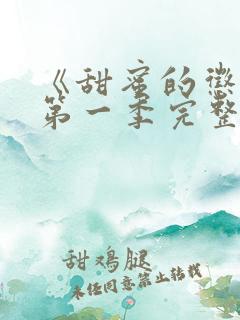 《甜蜜的惩
第一季完整
甜鸡腿
未经同意禁止转载